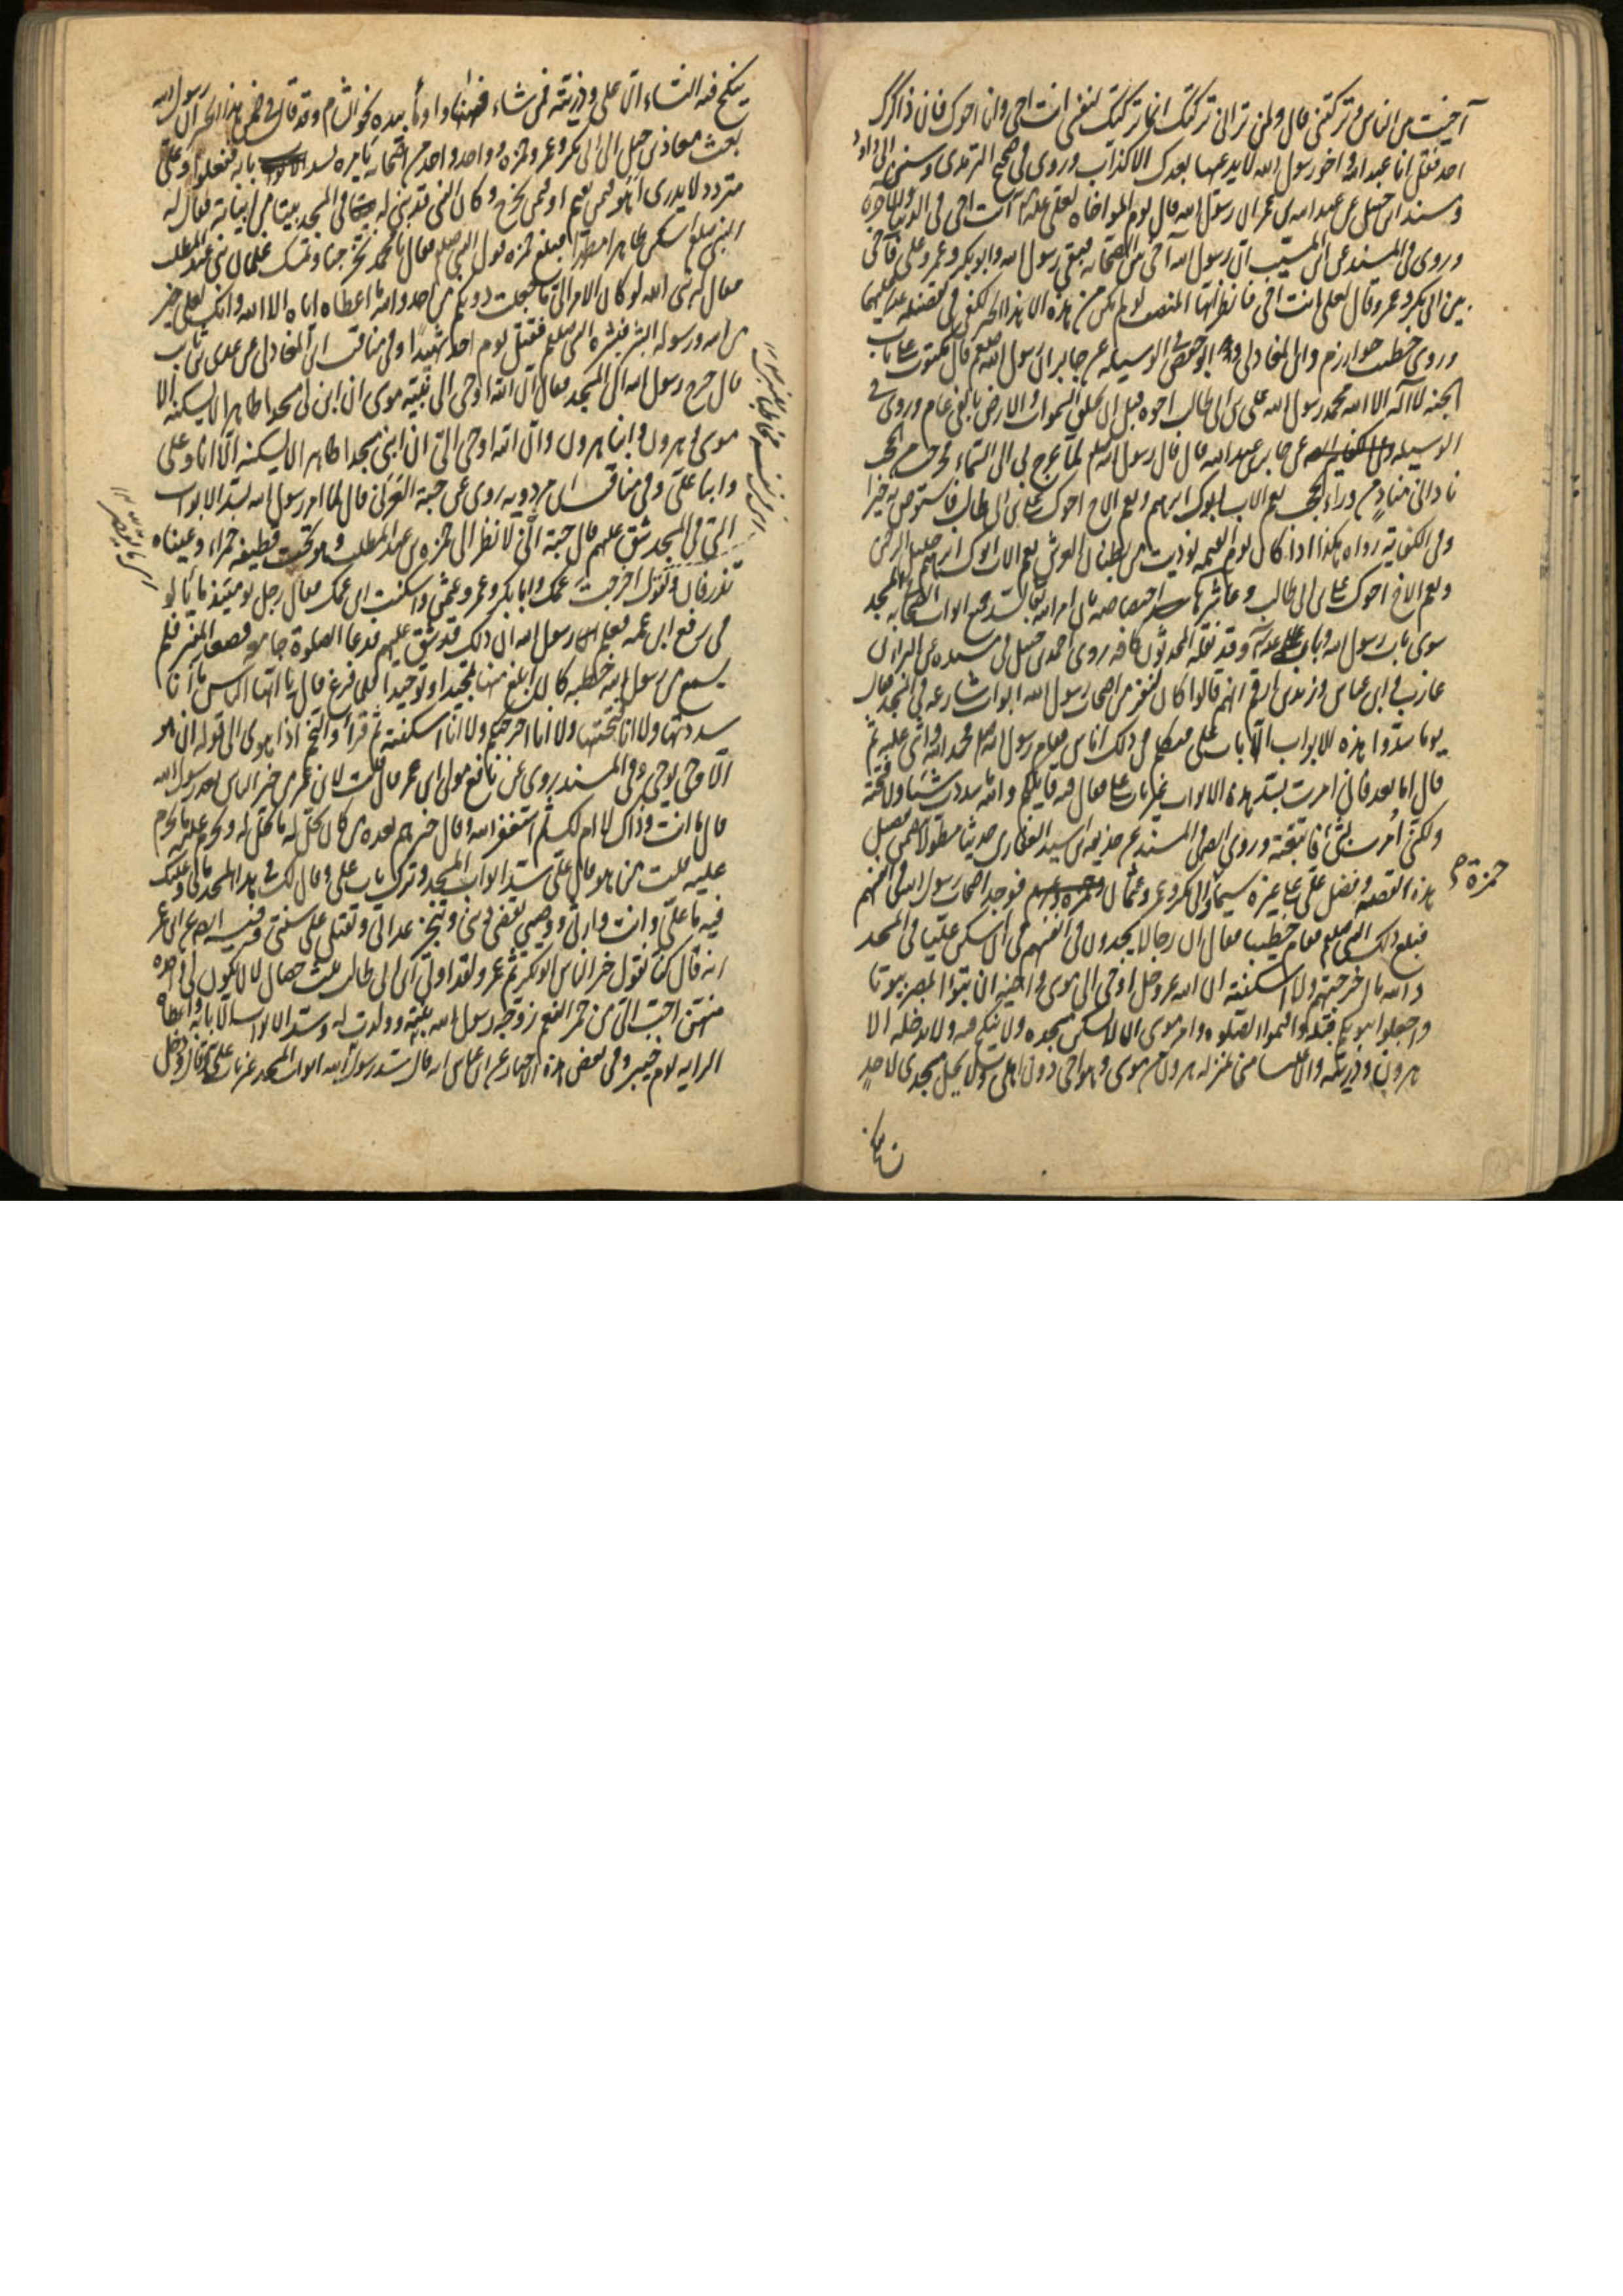 آخيت بين الناس وتركتني قال ولمن تراني تركتك انما تركتك لنفسي انت اخي وانا اخوك فان ذاكرك
احد فقل انا عبد الله واخو رسول الله لا يدعيها بعدك الا كذاب وروي في صحيح الترمذي وسنن ابي داود
ومسند ابن حنبل عن عبد الله بن عمر ان رسول الله قال يوم المواخاة لعلي انت اخي في الدنيا والاخرة
وروي في المسند عن ابن المسيب ان رسول الله آخى بين الصحابة فبقي رسول الله وابو بكر وعمر وعلي فآخى
بين ابي بكر وعمر وقال لعلي انت اخي فانظر ايها المنصف لو لم يكن من هذه الا هذا الخبر لكفى في تفضيله عليهما
وروى خطيب خوارزم وابن المغازلي وابو حفص في الوسيلة عن جابر ان رسول الله صلعم قال مكتوب على باب
الجنة لا اله الا الله محمد رسول الله علي بن ابي طالب اخوه قبل ان يخلق السموات والارض بالفي عام وروى في
الوسيلة عن جابر بن عبد الله قال قال رسول الله صلعم لما عرج بي الى السماء
ناداني مناد من وراء الحجب نعم الاب ابوك ابرهيم ونعم الاخ اخوك علي بن ابي طالب فاستوص به خيرا
وفي الكفاية رواه هكذا اذا كان يوم القيمة نوديت من بطنان العرش نعم الاب ابوك ابراهيم خليل الرحمن
ونعم الاخ اخوك علي بن ابي طالب وعاشرها اختصاصه بان امر الله بسد جميع ابواب الصحابة في المسجد
سوى باب رسول الله وباب علي وقد نقله المحدثون كافة روى احمد بن حنبل في مسنده عن البراء بن
عازب وابن عباس وزيد بن ارقم انهم قالوا كان لنفر من اصحاب رسول الله ابواب شارعة في المسجد فقال
يوما سدوا هذه الابواب الا باب علي فتكلم في ذلك اناس فقام رسول الله صلعم فحمد الله واثنى عليه ثم
قال اما بعد فاني امرت بسد هذه الابواب غير باب علي فقال فيه قايلكم والله ما سددت شيئا ولا فتحته
ولكني امرت بشئ فاتبعته وروى ايضا في المسند عن حذيفة بن اسيد الغفاري حديثا مطولا يتضمن تفصيل
هذه القصة وفضل علي على غيره سيما ابي بكر وعمر وعثمان وحمزة فوجد اصحاب رسول الله في انفسهم
حمزة
فبلغ ذلك النبي صلعم فقام خطيبا فقال ان رجالا يجدون في انفسهم في ان اسكن عليا في المسجد
والله ما اخرجتهم ولا اسكنته ان الله عز وجل اوحى الى موسى واخيه ان تبوآ لمصر بيوتا
واجعلوا بيوتكم قبلة واقيموا الصلوة وامر موسى ان لا يسكن مسجده ولا ينكح فيه ولا يدخله الا
هرون وذريته وان عليا مني بمنزلة هرون من موسى وهو اخي دون اهلي ولا يحل مسجدي لاحد
ان ينكح
ينكح فيه النساء الا علي وذريته فمن شاء فههنا واومأ بيده نحو الشام وقد قال في ضمن هذا الخبر ان رسول الله
بعث معاذ بن جبل الى ابي بكر وعمر وحمزة وواحد واحد من اصحابه يأمره بسد بابه ففعلوا وعلي
متردد لا يدري أهو فيمن يقيم او فيمن يخرج وكان النبي قد بنى له في المسجد بيتا من ابياته فقال له
النبي صلعم اسكن طاهرا مطهرا فبلغ حمزة قول النبي صلعم فقال يا محمد تخرجنا وتمسك غلمان بني عبد المطلب
فقال له نبي الله لو كان الامر الي ما جعلت دونكم من احد والله ما اعطاه اياه الا الله وانك لعلى خير
من الله ورسوله ابشر فبشره النبي صلعم فقتل يوم احد شهيدا وفي مناقب ابن المغازلي عن عدي بن ثابت
قال خرج رسول الله الى المسجد فقال ان الله اوحى الى نبيه موسى ان ابن لي مسجدا طاهرا لا يسكنه الا
موسى وهرون وابنا هرون وان الله اوحى الي ان ابني مسجدا طاهرا لا يسكنه الا انا وعلي
وابنا علي وفي مناقب ابن مردويه روى عن حبة العرني قال لما امر رسول الله بسد الابواب
التي في المسجد شق عليهم قال حبة اني لانظر الى حمزة بن عبد المطلب وهو تحت قطيفة حمراء وعيناه
تذرفان ويقول اخرجت عمك وابا بكر وعمر وعثمن واسكنت ابن عمك فقال رجل يومئذ ما يألو
في رفع ابن عمه فعلم رسول الله ان ذلك قد شق عليهم فدعا الصلوة جامعة فصعد المنبر فلم
يسمع من رسول الله خطبة كان ابلغ منها تمجيدا وتوحيدا فلما فرغ قال يا ايها الناس ما انا
سددتها ولا انا فتحتها ولا انا اخرجتكم ولا انا اسكنته ثم قرأ والنجم اذا هوى الى قوله ان هو
الا وحي يوحى وفي المسند يروى عن نافع مولى ابن عمر قال قلت لابن عمر من خير الناس بعد رسول الله
قال ما انت وذاك لا ام لك ثم استغفر الله وقال خيرهم بعده من كان يحل له ما يحل له ويحرم عليه ما يحرم
عليه قلت من هو قال علي سد ابواب المسجد وترك باب علي وقال لك في هذا المسجد ما لي وعليك
فيه ما علي وانت وارثي ووصيي تقضي ديني وتنجز عداتي وتقتل على سنتي وفيه ايضا عن ابن عمر
انه قال كنا نقول خير الناس ابو بكر ثم عمر ولقد اوتي ابن ابي طالب ثلث خصال لان يكون لي واحدة
منهن احب الي من حمر النعم زوجه رسول الله بنته وولدت له وسد الابواب الا بابه واعطاه
الراية يوم خيبر وفي بعض هذه الاخبار عن ابن عباس انه قال سد رسول الله ابواب المسجد غير باب علي فكان يدخل